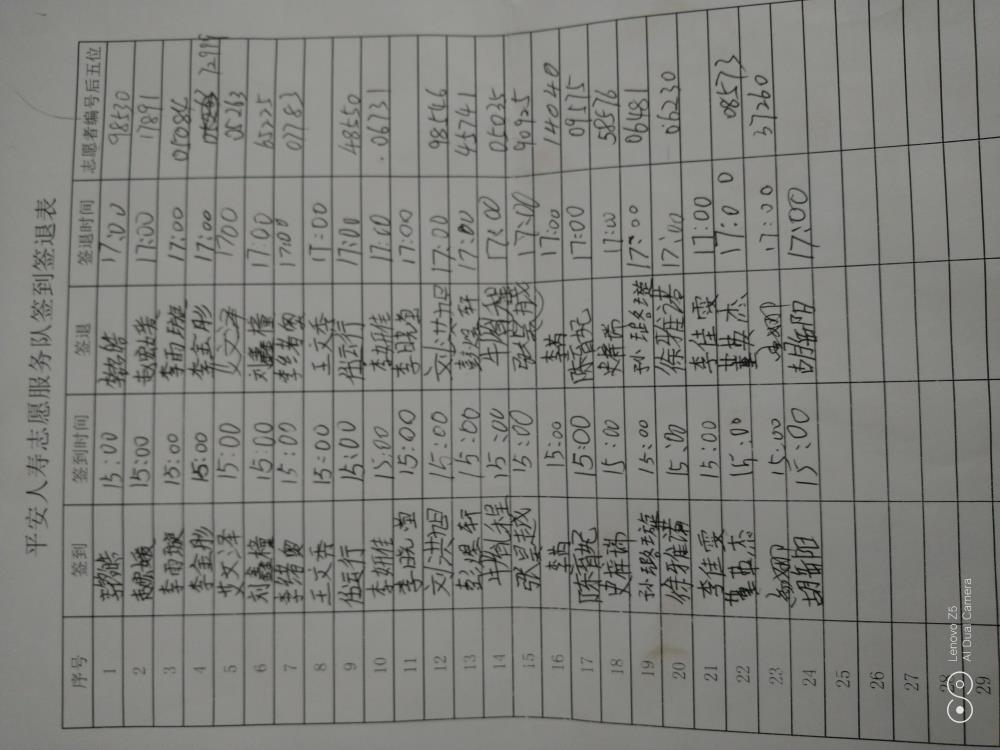 平安人寿志愿服务队签到签退表
序号 签到 签到时间 签退 签退时间 志愿者编号后五位
1 15:00 17:00 98530
2 15:00 17:00 17891
3 李雨璇 15:00 李雨璇 17:00 05084
4 李金彤 15:00 李金彤 17:00 72999
5 艾文泽 15:00 艾文泽 1700 06263
6 刘鑫橦 15:00 刘鑫橦 17:00 65225
7 李绪勇 15:00 李绪勇 17:00 07783
8 王文秀 15:00 王文秀 17:00
9 伯运行 15:00 伯运行 17:00 48550
10 15:00 17:00 06731
11 李晓莹 15:00 李晓莹 17:00
12 刘洪旭 15:00 刘洪旭 17:00 98546
13 15:00 17:00 45741
14 15:00 17:00 05025
15 张昊越 15:00 17:00 90925
16 15:00 17:00 14040
17 15:00 17:00 09575
18 史梓瑞 15:00 17:00 58576
19 孙璐璇 15:00 孙璐璇 17:00 06481
20 徐雅诺 15:00 徐雅诺 17:00 06230
21 李佳雯 15:00 李佳雯 17:00
22 董英杰 15:00 董英杰 17:00 08573
23 15:00 17:00 37260
24 15:00 17:00
25
26
27
28
29
Lenovo Z5
AI Dual Camera